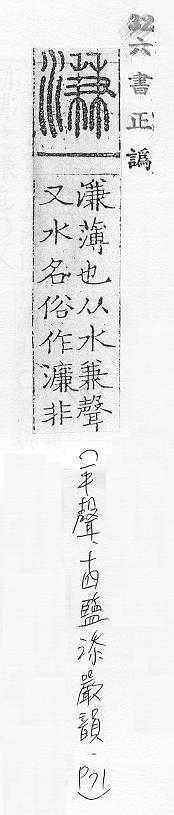 22 六書正譌
溓
溓薄也从水兼聲
又水名俗作濂非
(平聲、十四鹽添嚴韻.P71)